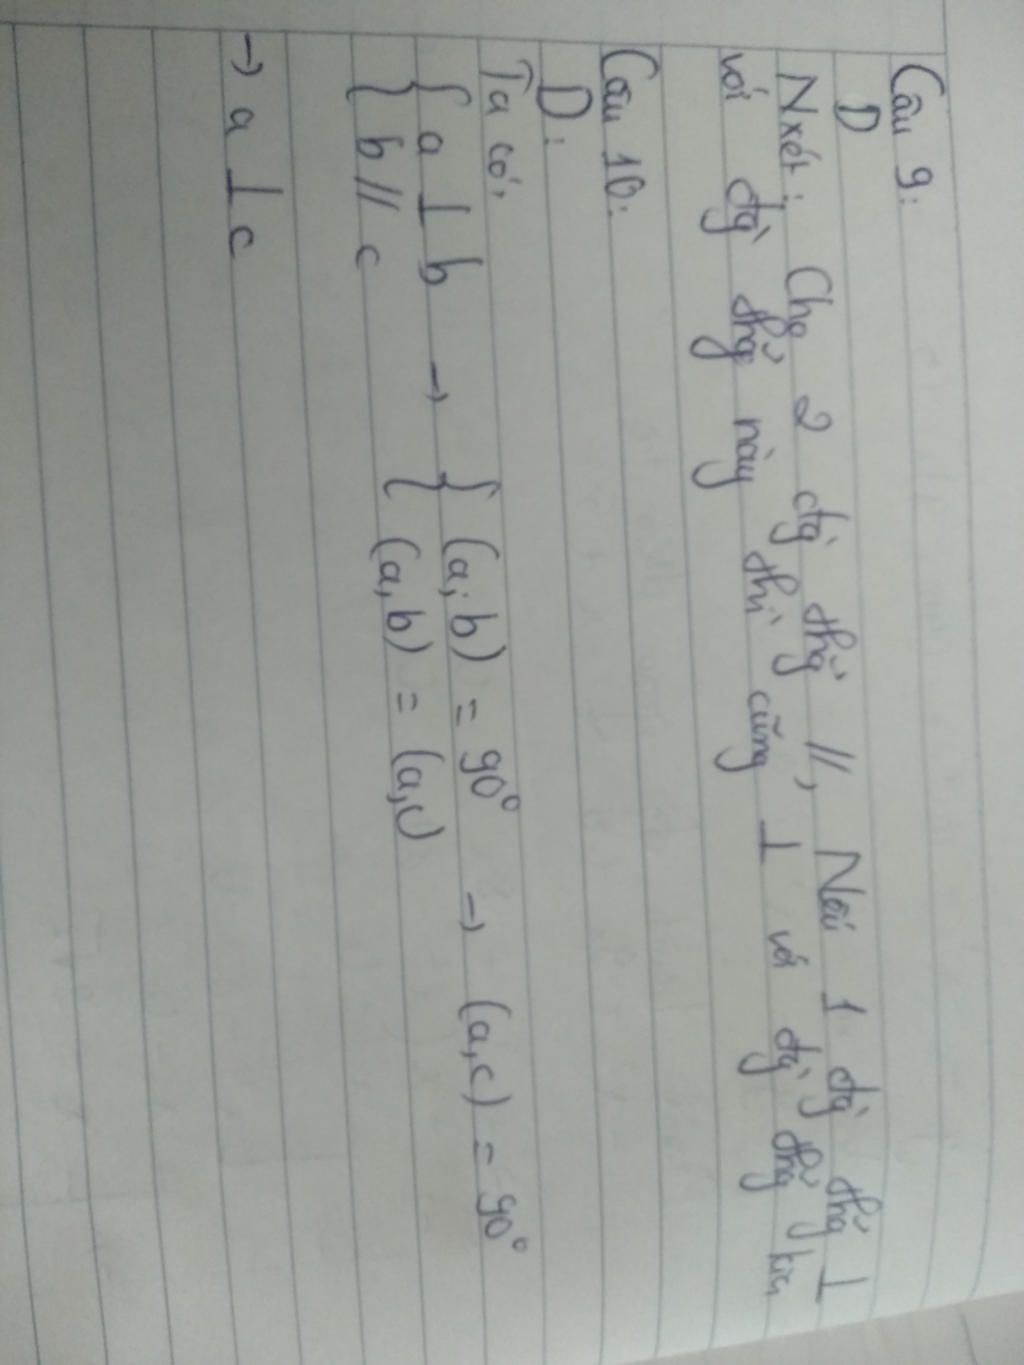 Câu 9:
D
Nxét: Cho 2 đg` thg̉ //, Nếu 1 đg` thg̉ ⊥
với đg` thg̉ này thì cũng ⊥ với đg` thg̉ kia
Câu 10:
D:
Ta có:
{ a ⊥ b → { (a; b) = 90° → (a,c) = 90°
{ b // c { (a,b) = (a,c)
→ a ⊥ c